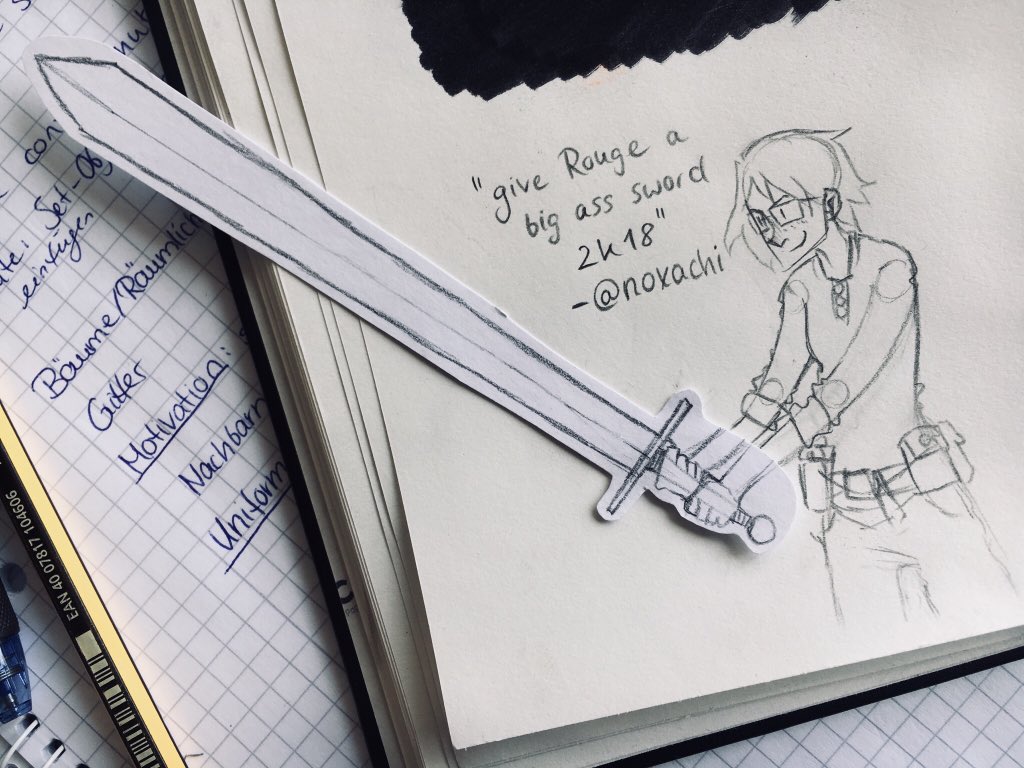 "give Rouge a
big ass sword
2k18"
-@noxachi
einfügen
Bäume/Räumlich
Gitter
Motivation:
Nachbarn
Uniform
EAN 40 07817 104606